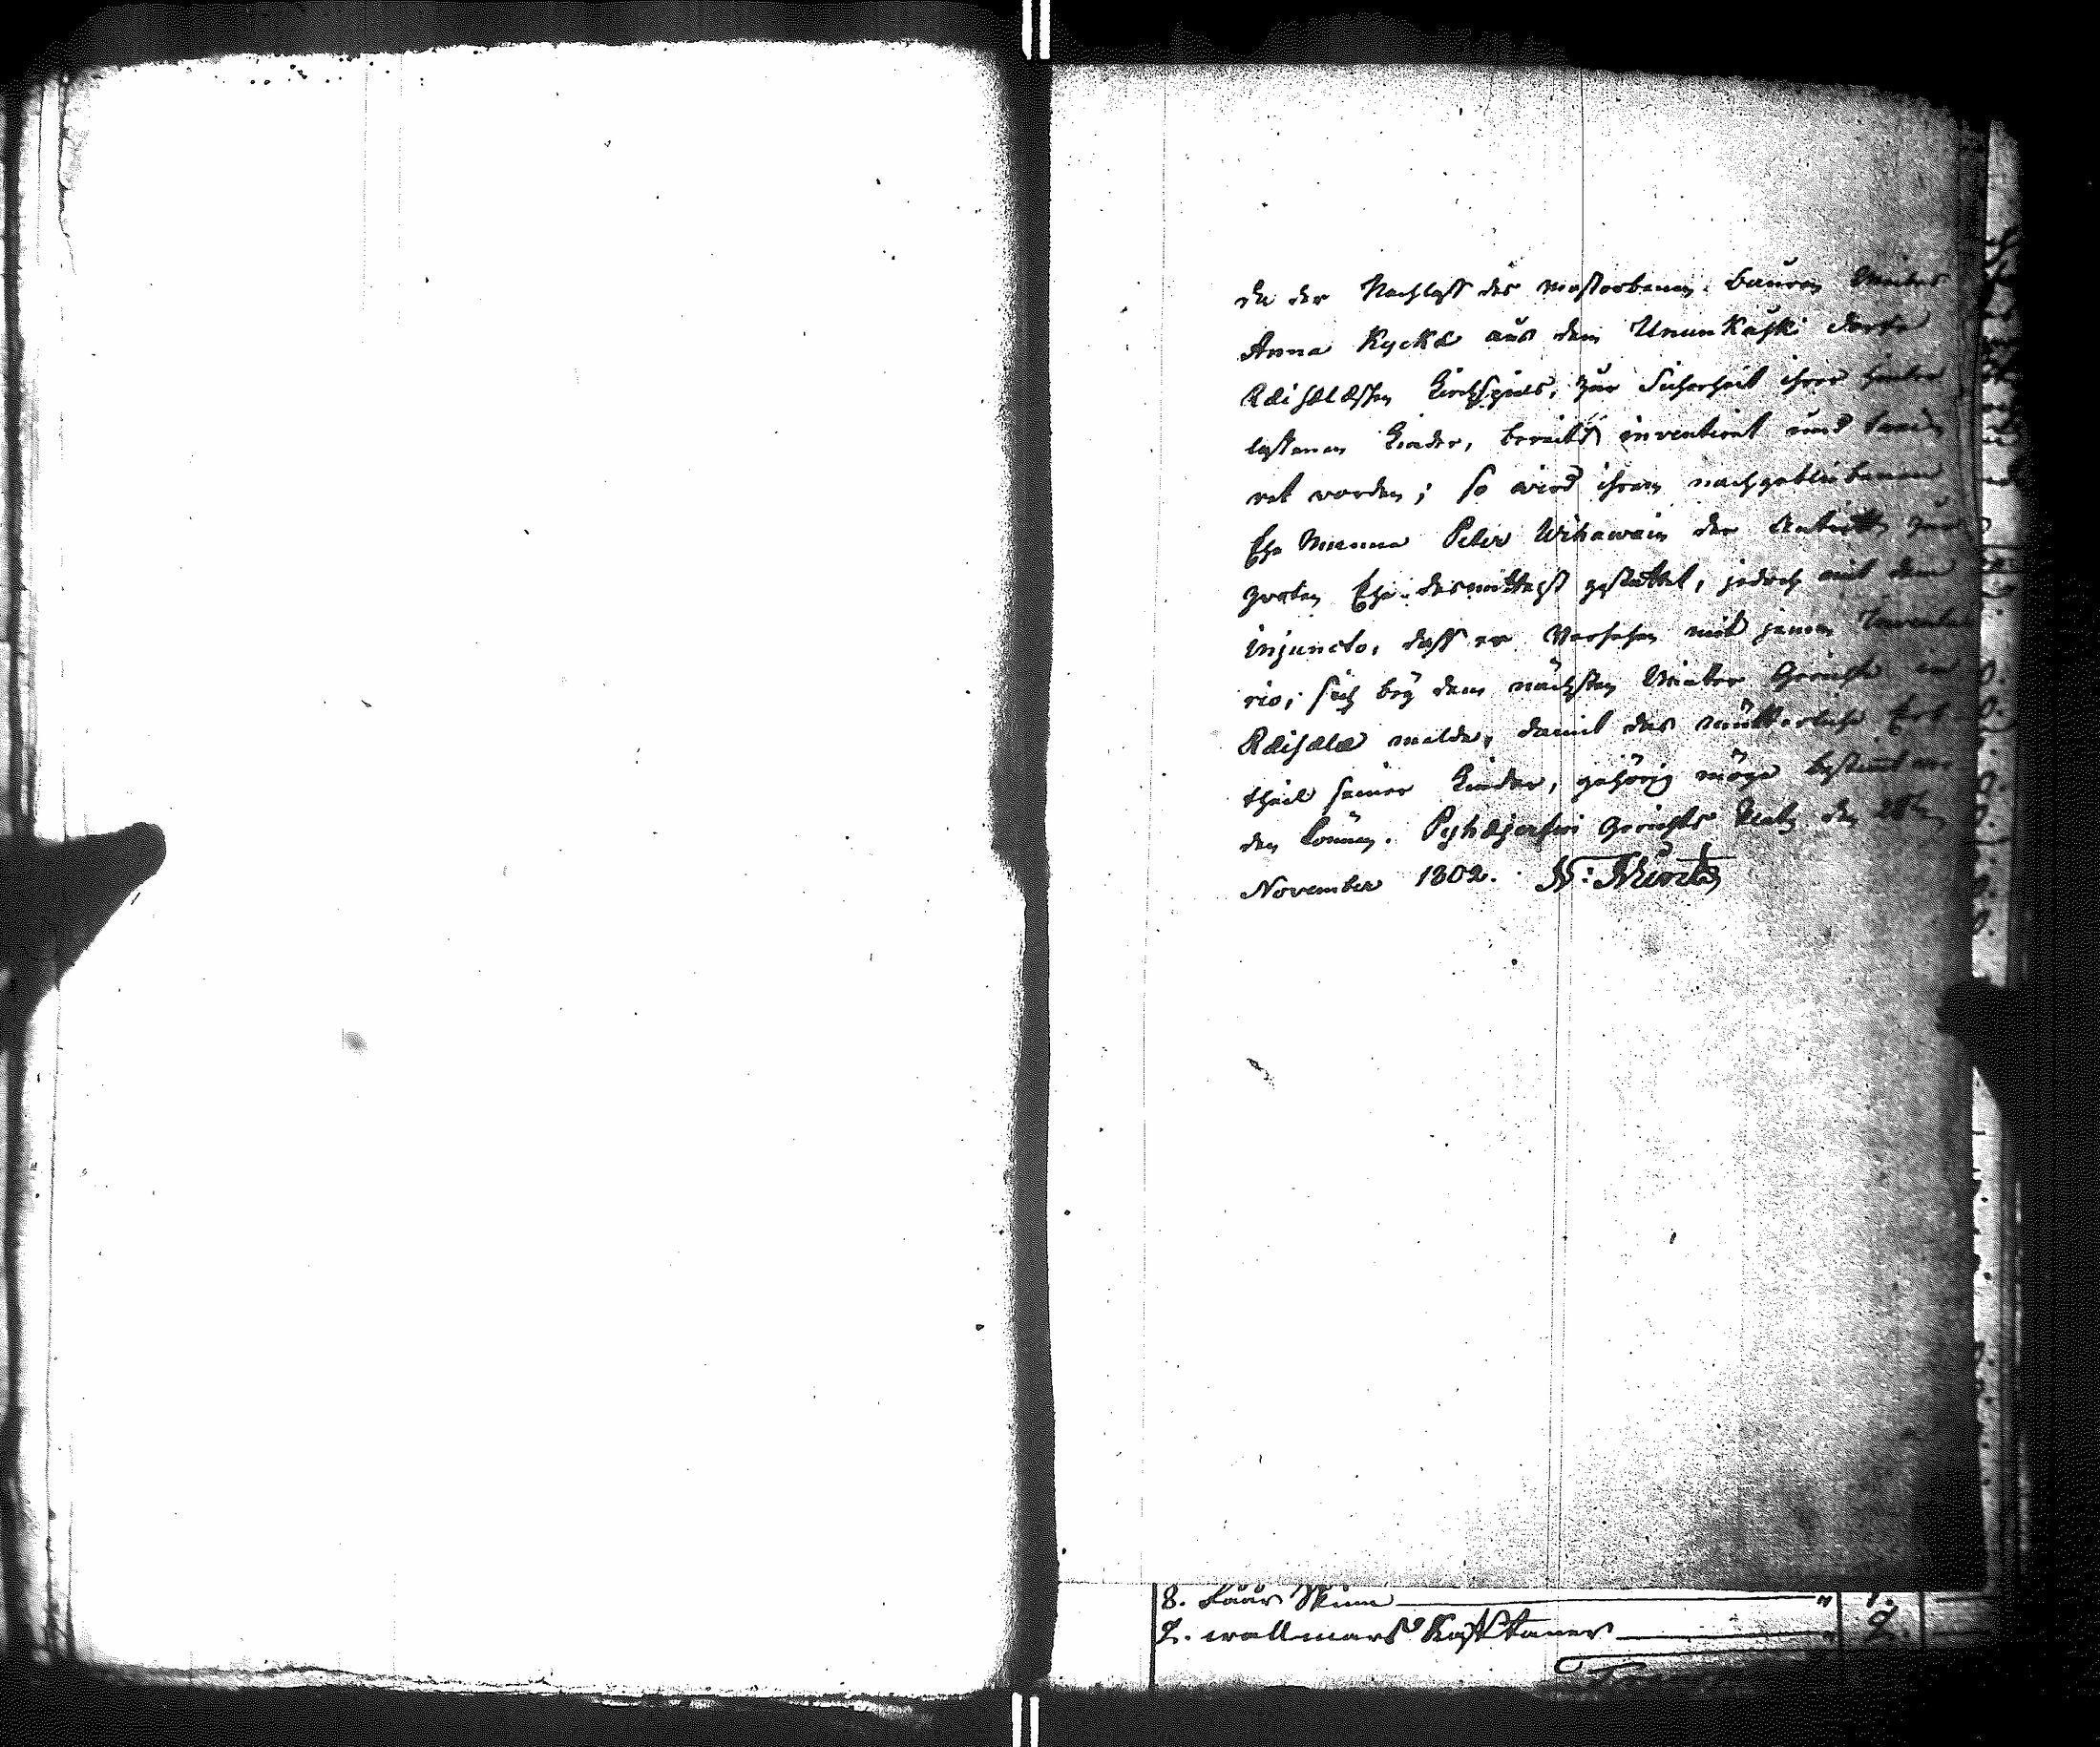 Da der Nachlass des verstorbenen Bauren Weibes
Anna Kyckä aus dem Ununkaski Dorfe
Räisäläschen Kirchspiels, zur Sicherheit ihrer hinter
lassenen Kinder, bereits inventirt und taxi
ret worden; so wird ihrem nachgebliebenen
Ehe Manne Peter Wihawain der Antritt zur
zwoten Ehe desmittelst gestattet, jedoch mit dem
injuncto, dass er versehen mit jenem Inventa
rio, sich bey dem nächsten Winter Gerichte in
Räisälä melde, damit das mütterliche Erb
theil seiner Kinder, gehörig möge bestimt wer
den können. Pyhäjerfwi Gerichts Platz den
November 1802. N:
8. Laur
2. wallmars